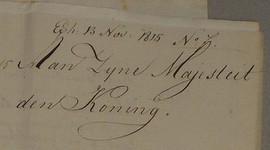 Exh. 13 Nov. 1815 No. 7.
Aan Zyne Majesteit
den Koning.